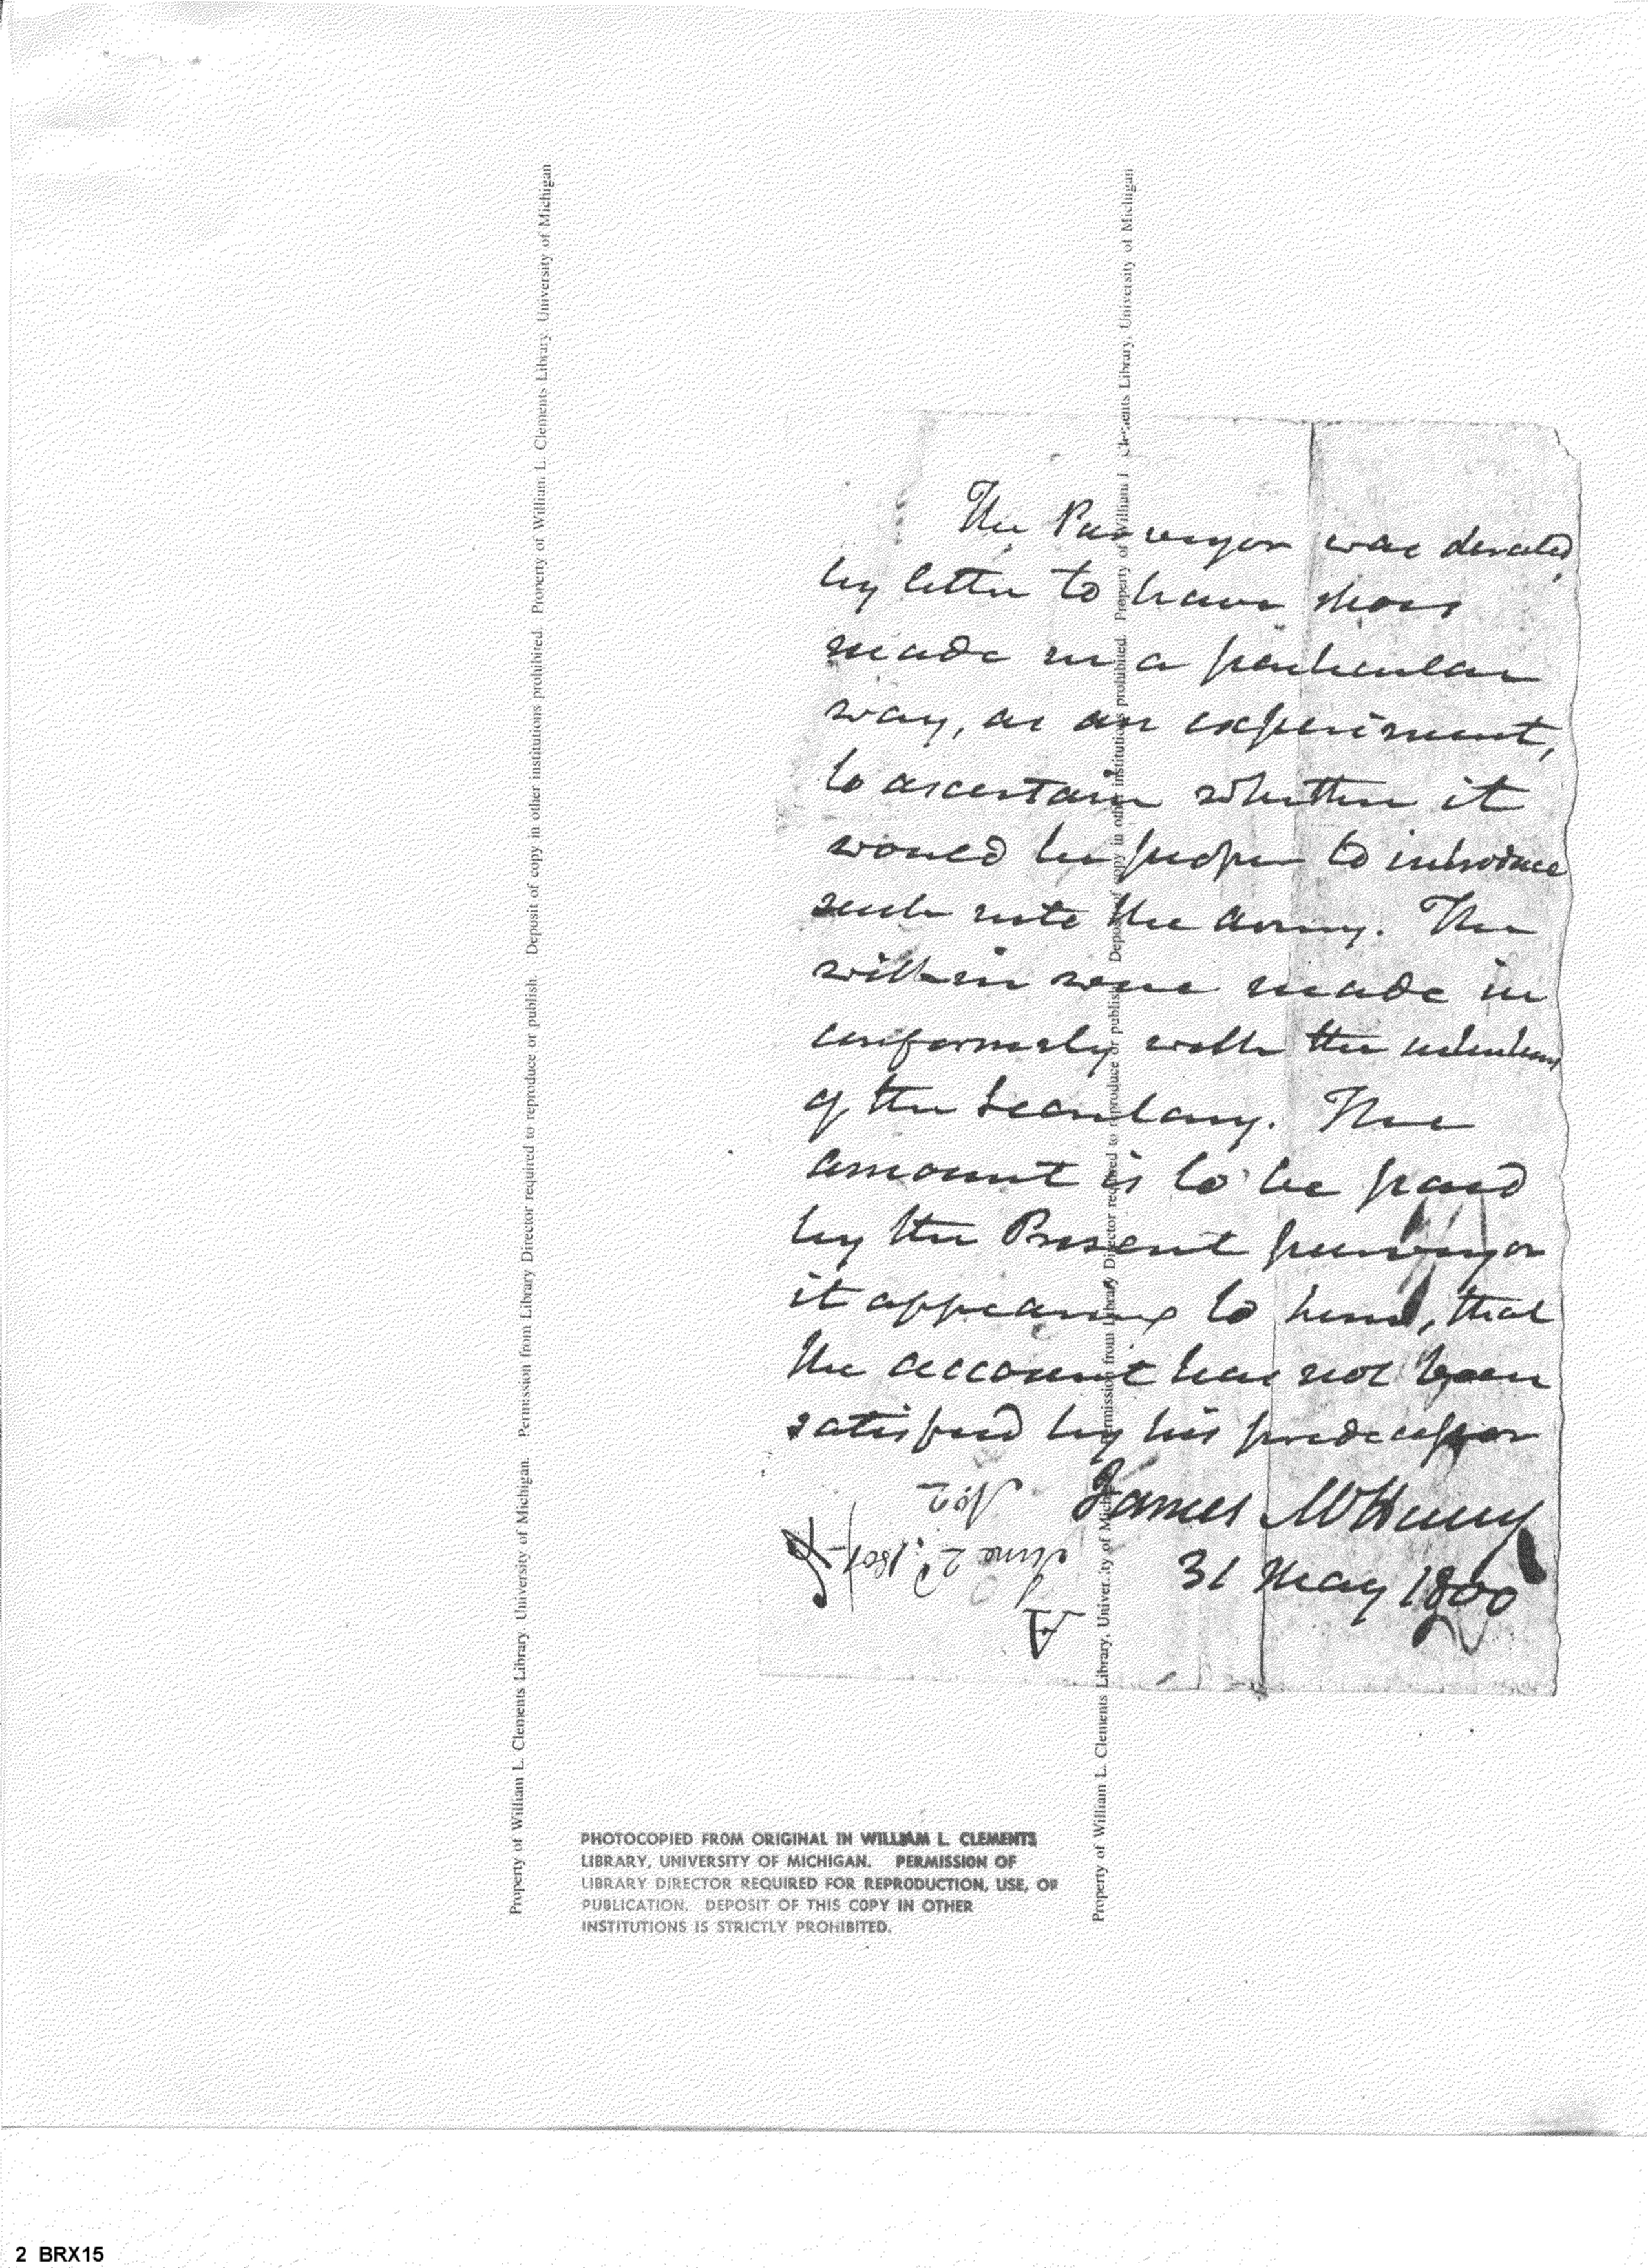 The Purveyor was directed
by letter to have shoes
made in a particular
way, as an experiment,
to ascertain whether it
would be proper to introduce
such into the army. The
within were made in
conformity with the intentions
of the Secretary. The
amount is to be paid
by the Present purveyor
it appearing to him, that
the account has not been
satisfied by his predecessor
James McHenry
31 May 1800
No. 2
June 2d. 1801
A
Property of William L. Clements Library, University of Michigan. Permission from Library Director required to reproduce or publish. Deposit of copy in other institutions prohibited. Property of William L. Clements Library, University of Michigan
Property of William L. Clements Library, University of Michigan. Permission from Library Director required to reproduce or publish. Deposit of copy in other institutions prohibited. Property of William L. Clements Library, University of Michigan
PHOTOCOPIED FROM ORIGINAL IN WILLIAM L. CLEMENTS
LIBRARY, UNIVERSITY OF MICHIGAN. PERMISSION OF
LIBRARY DIRECTOR REQUIRED FOR REPRODUCTION, USE, OR
PUBLICATION. DEPOSIT OF THIS COPY IN OTHER
INSTITUTIONS IS STRICTLY PROHIBITED.
2 BRX15